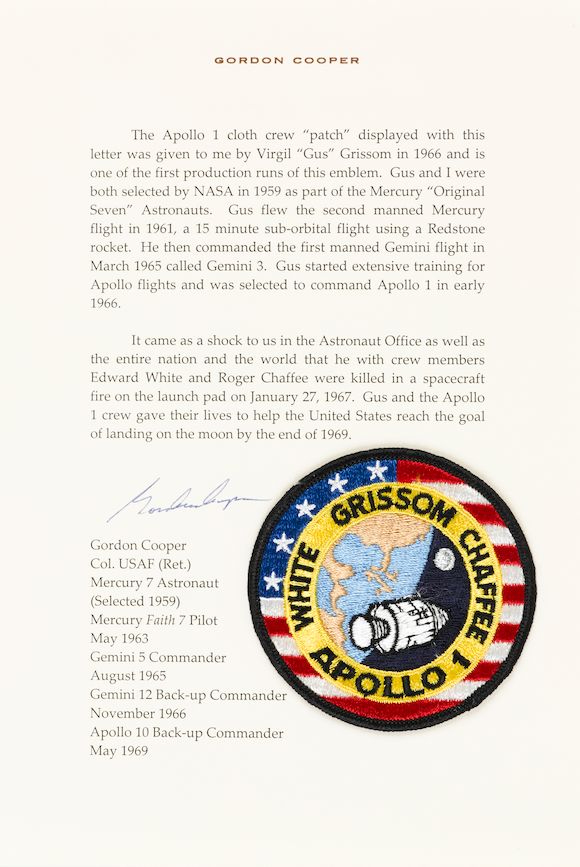 GORDON COOPER
The Apollo 1 cloth crew “patch” displayed with this
letter was given to me by Virgil “Gus” Grissom in 1966 and is
one of the first production runs of this emblem.  Gus and I were
both selected by NASA in 1959 as part of the Mercury “Original
Seven” Astronauts.  Gus flew the second manned Mercury
flight in 1961, a 15 minute sub-orbital flight using a Redstone
rocket.  He then commanded the first manned Gemini flight in
March 1965 called Gemini 3.  Gus started extensive training for
Apollo flights and was selected to command Apollo 1 in early
1966.
It came as a shock to us in the Astronaut Office as well as
the entire nation and the world that he with crew members
Edward White and Roger Chaffee were killed in a spacecraft
fire on the launch pad on January 27, 1967.  Gus and the Apollo
1 crew gave their lives to help the United States reach the goal
of landing on the moon by the end of 1969.
Gordon Cooper
Gordon Cooper
Col. USAF (Ret.)
Mercury 7 Astronaut
(Selected 1959)
Mercury Faith 7 Pilot
May 1963
Gemini 5 Commander
August 1965
Gemini 12 Back-up Commander
November 1966
Apollo 10 Back-up Commander
May 1969
WHITE GRISSOM CHAFFEE
APOLLO 1